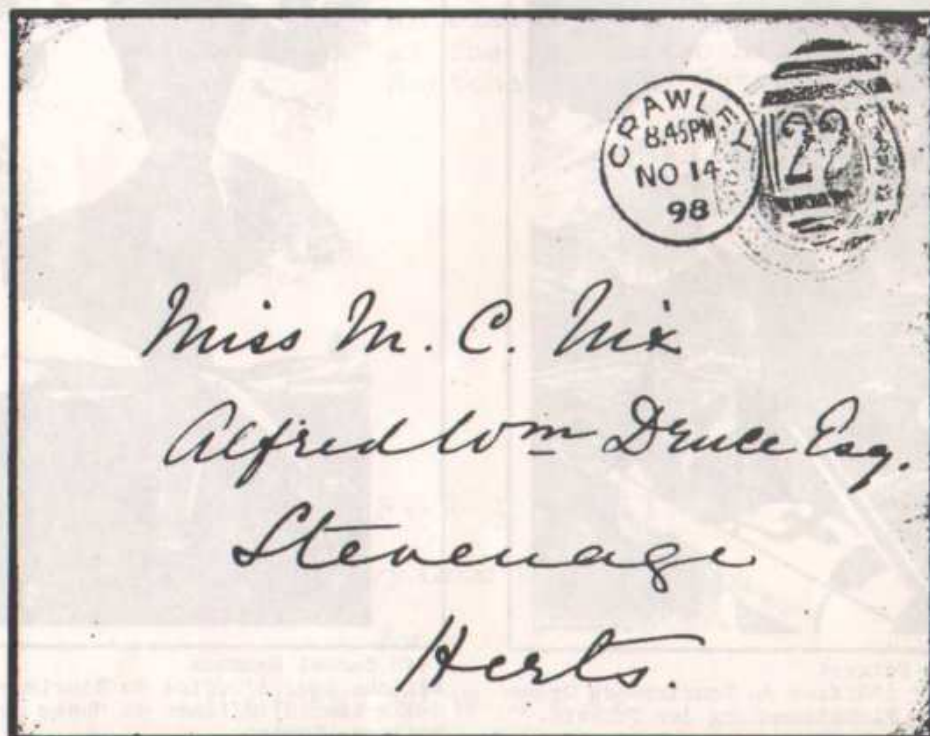 CRAWLEY
8.45PM
NO 14
98
Miss M. C. Nix
Alfred Wm Druce Esq.
Stevenage
Herts.